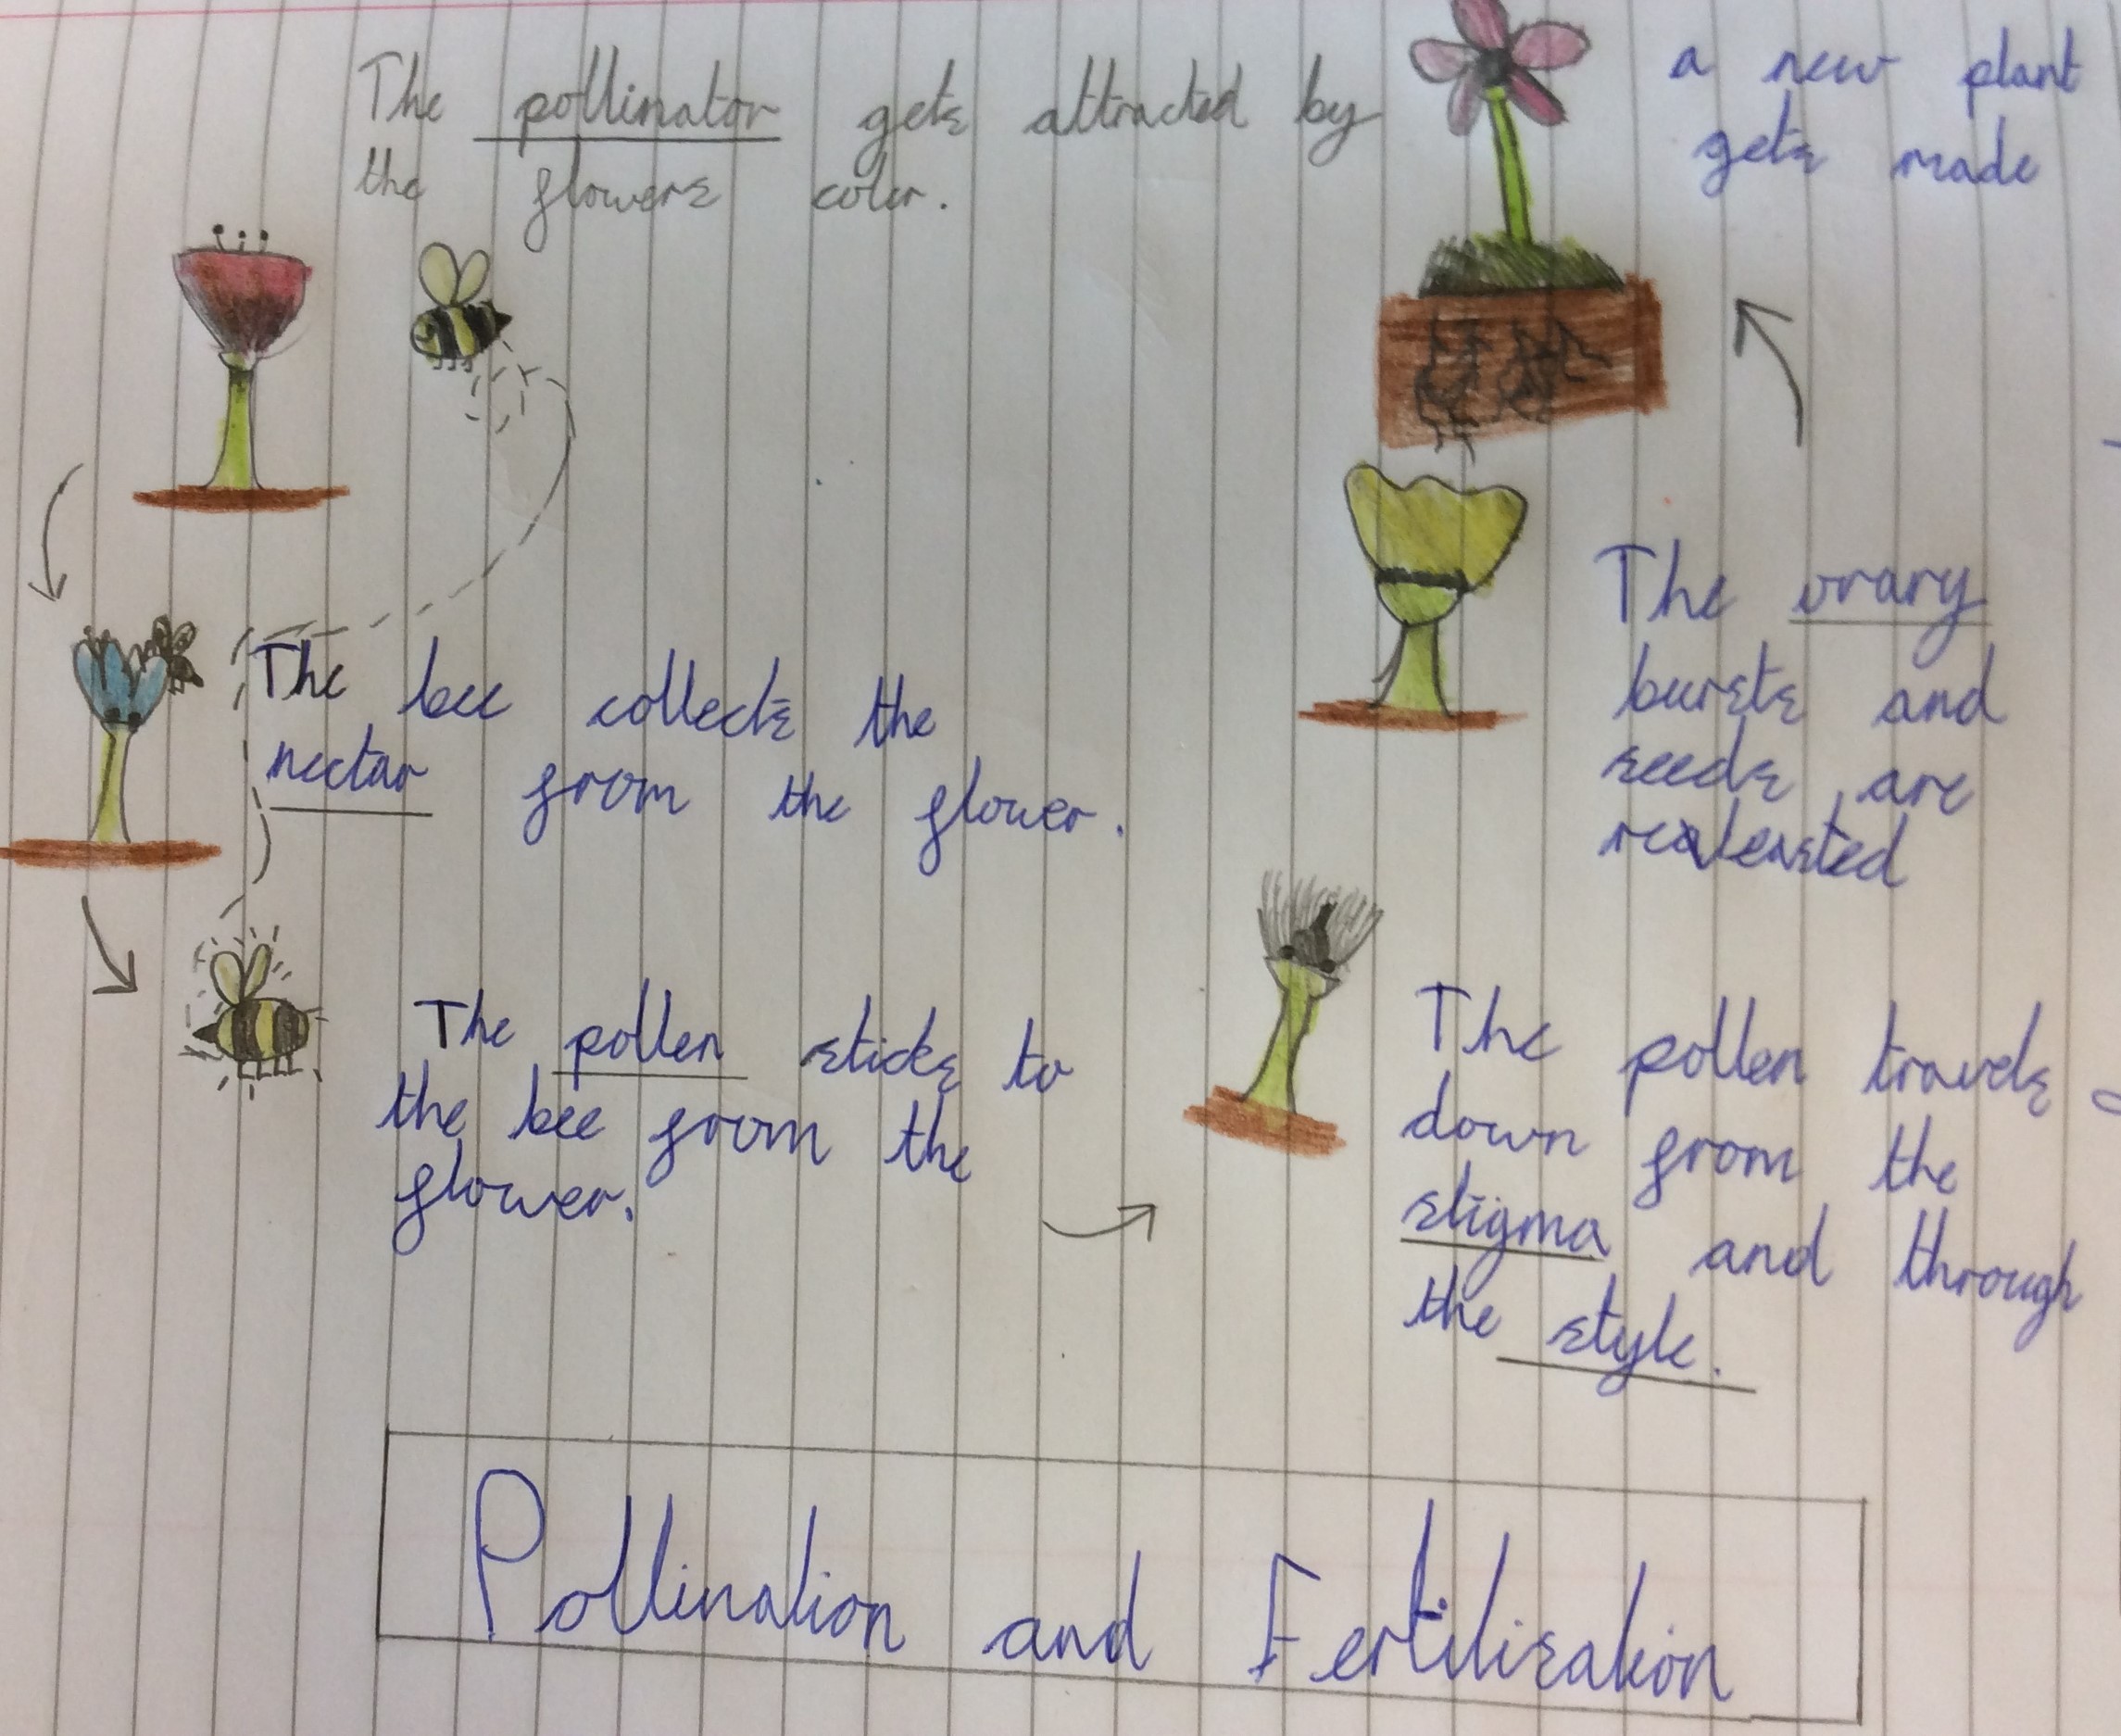 The pollinator gets attracted by
the flowers color.
The bee collects the
nectar from the flower.
The pollen sticks to
the bee from the
flower.
The pollen travels
down from the
stigma and through
the style.
The ovary
bursts and
seeds are
a new plant
gets made
Pollination and Fertilisation